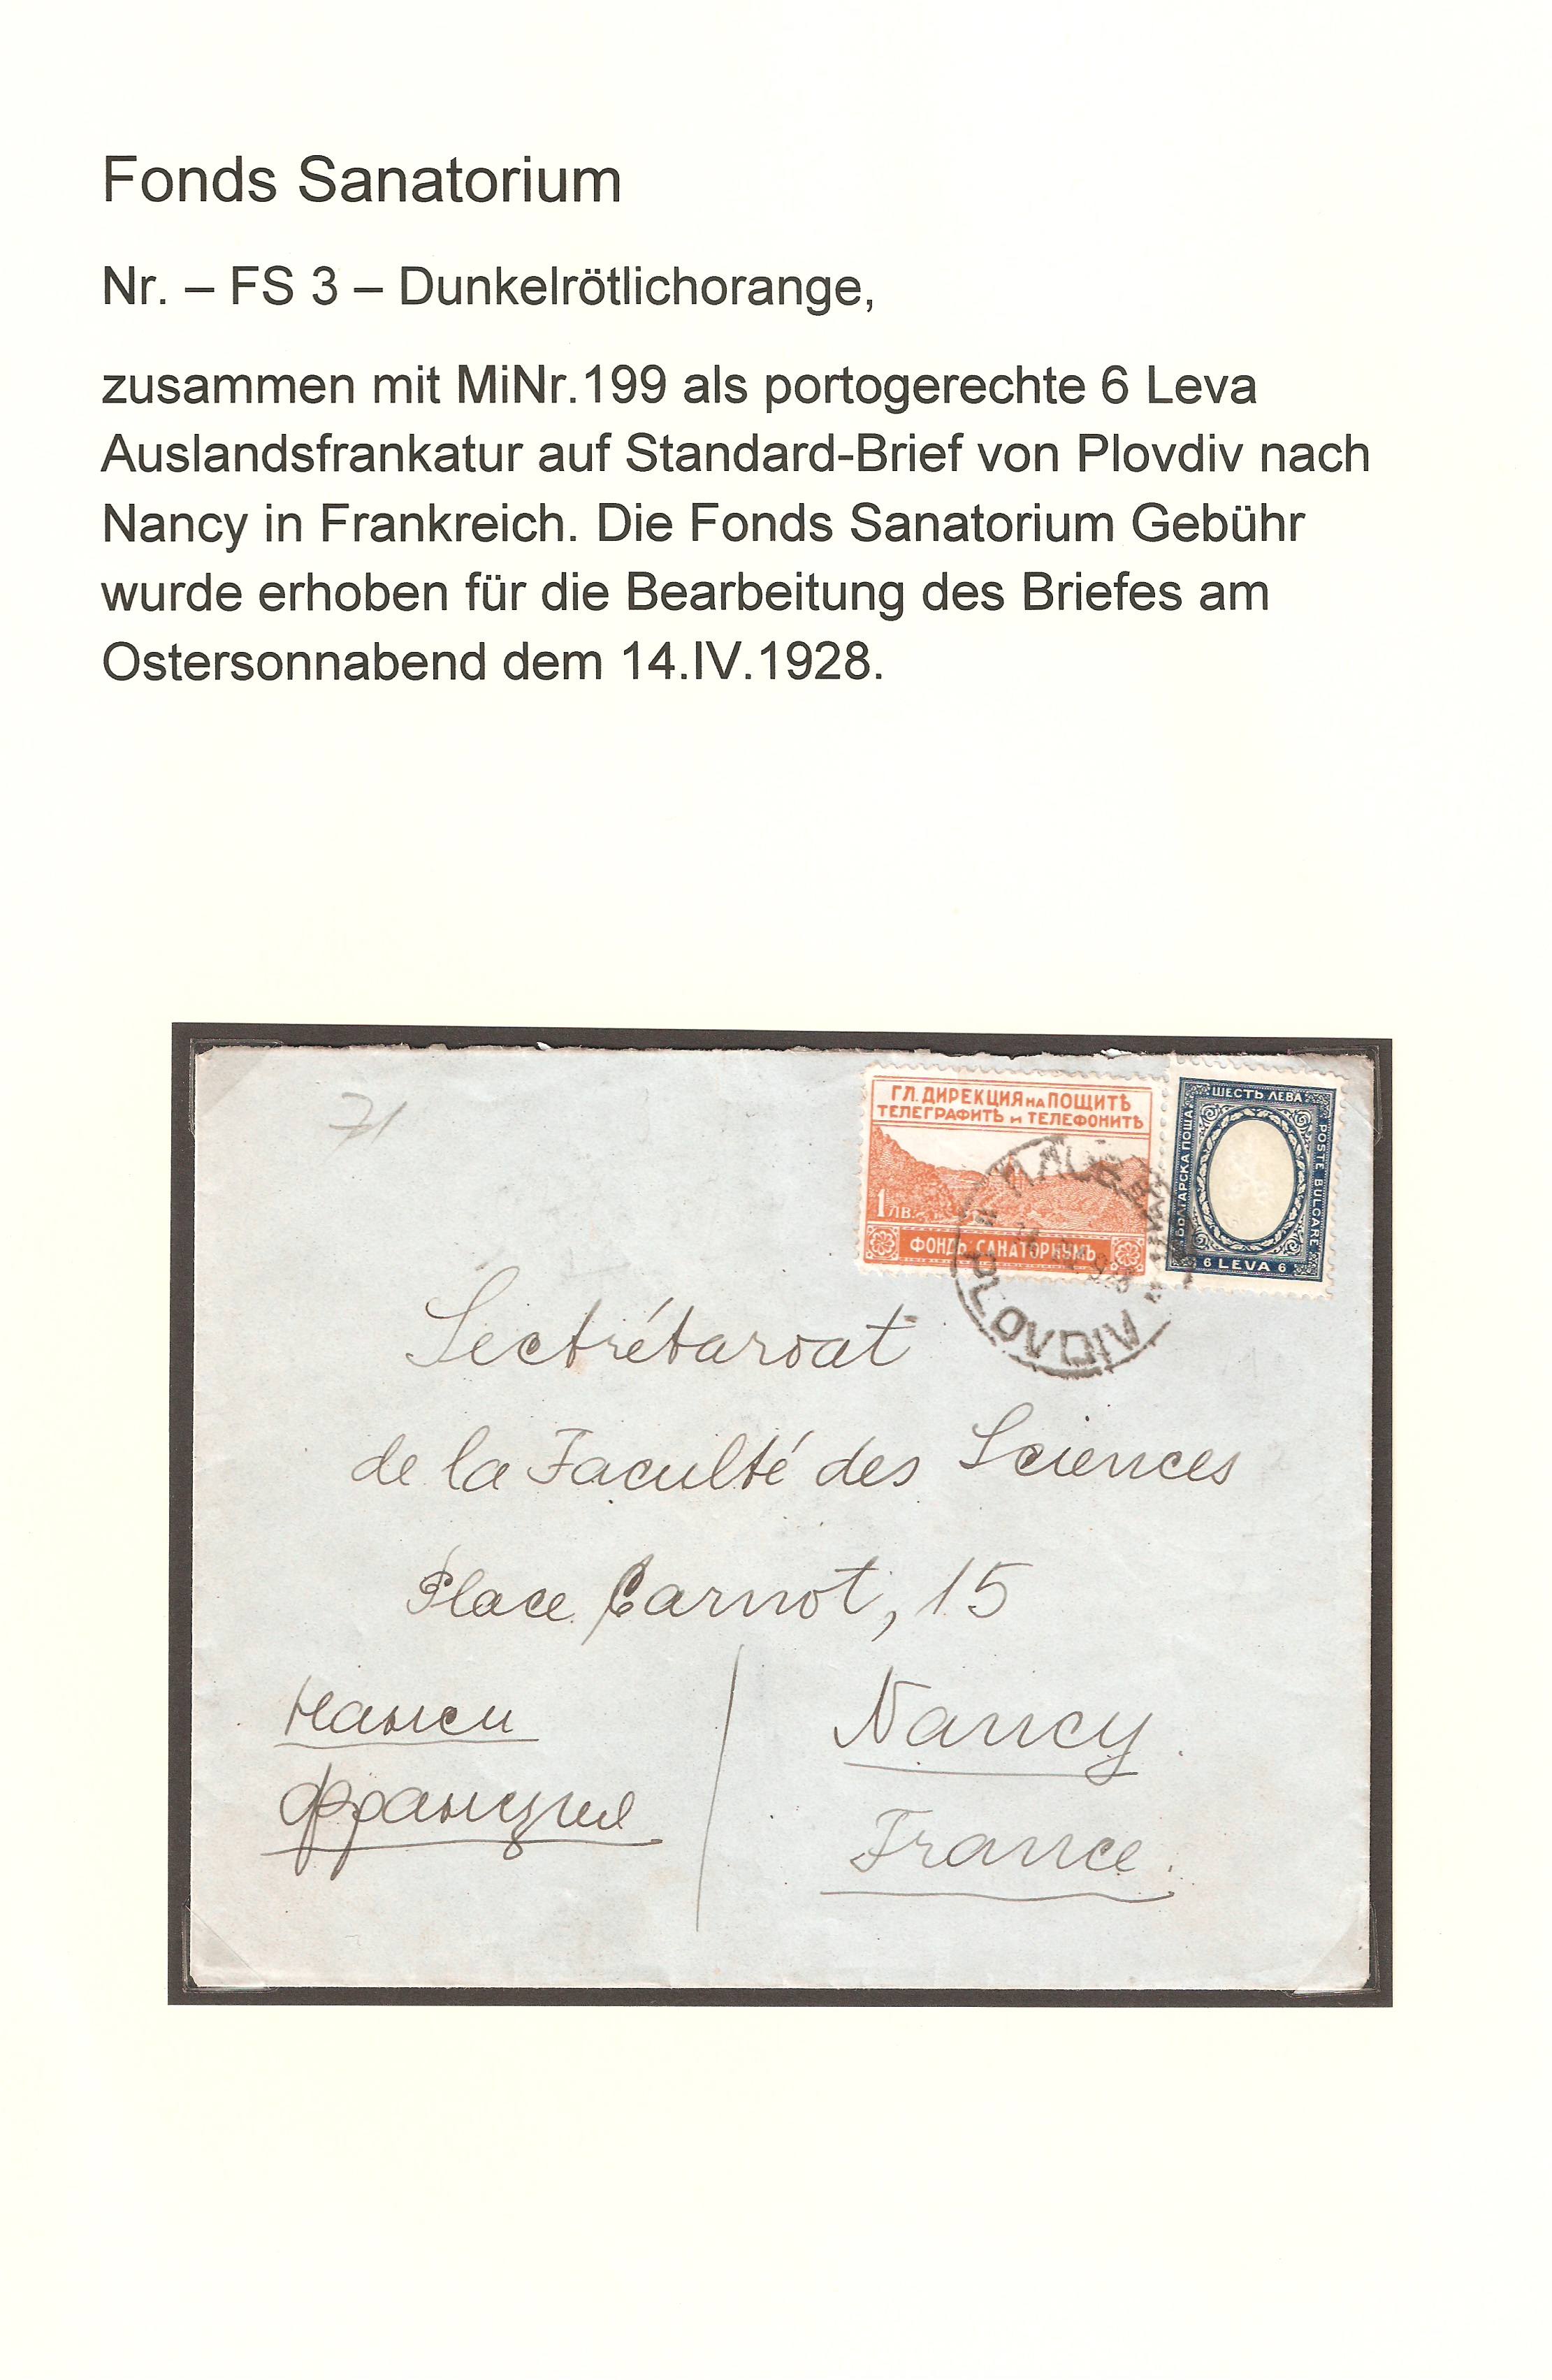 Fonds Sanatorium
Nr. – FS 3 – Dunkelrötlichorange,
zusammen mit MiNr.199 als portogerechte 6 Leva
Auslandsfrankatur auf Standard-Brief von Plovdiv nach
Nancy in Frankreich. Die Fonds Sanatorium Gebühr
wurde erhoben für die Bearbeitung des Briefes am
Ostersonnabend dem 14.IV.1928.
71
ГЛ. ДИРЕКЦИЯ НА ПОЩИТѢ
ТЕЛЕГРАФИТѢ И ТЕЛЕФОНИТѢ
1 ЛВ.
ФОНДЪ САНАТОРИУМЪ
ШЕСТЬ ЛЕВА
БЪЛГАРСКА ПОЩА
POSTE BULGARE
6 LEVA 6
PLOVDIV
Sectrétaroat
de la Faculté des Sciences
Place Carnot, 15
Нанси
Франция
Nancy.
France.